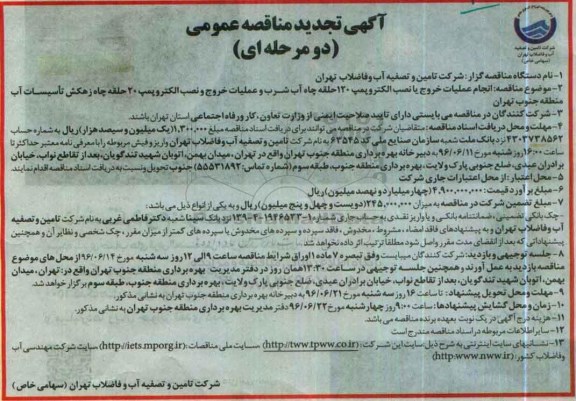 شرکت تامین و تصفیه
آب و فاضلاب تهران
(سهامی خاص)
آگهی تجدید مناقصه عمومی
(دو مرحله ای)
۱- نام دستگاه مناقصه گزار: شرکت تامین و تصفیه آب و فاضلاب تهران
۲- موضوع مناقصه: انجام عملیات خروج یا نصب الکتروپمپ ۱۲۰ حلقه چاه آب شرب و عملیات خروج و نصب الکتروپمپ ۲۰ حلقه چاه زهکش تأسیسات آب
منطقه جنوب تهران
۳- شرکت کنندگان در مناقصه می بایستی دارای تایید صلاحیت ایمنی از وزارت تعاون، کار و رفاه اجتماعی استان تهران باشند.
۴- مهلت و محل دریافت اسناد مناقصه: متقاضیان شرکت در مناقصه می توانند برای دریافت اسناد مناقصه مبلغ ۱,۳۰۰,۰۰۰ (یک میلیون و سیصد هزار) ریال به شماره حساب
۴۳۰۳۷۳۸۵۶۲ نزد بانک ملت شعبه سازمان صنایع ملی کد ۶۳۵۴۵ به نام شرکت تامین و تصفیه آب و فاضلاب تهران واریز و فیش مربوطه را با معرفی نامه معتبر حداکثر تا
ساعت ۱۶:۰۰ روز شنبه مورخ ۹۶/۰۶/۱۱ به دبیرخانه بهره برداری منطقه جنوب تهران واقع در تهران، میدان بهمن، اتوبان شهید تندگویان، بعد از تقاطع نواب، خیابان
برادران عبدی، ضلع جنوبی پارک ولایت، بهره برداری منطقه جنوب، طبقه سوم (شماره تماس: ۵۵۵۳۱۸۹۲) جنوب تحویل و نسبت به دریافت اسناد مناقصه اقدام نمایند.
۵- محل اعتبار: از محل اعتبارات جاری شرکت
۶- مبلغ برآورد قیمت: ۴,۹۰۰,۰۰۰,۰۰۰ (چهار میلیارد و نهصد میلیون) ریال
۷- مبلغ تضمین شرکت در مناقصه به میزان ۲۴۵,۰۰۰,۰۰۰ (دویست و چهل و پنج میلیون) ریال و به یکی از انواع ذیل می باشد:
- چک بانکی تضمینی، ضمانتنامه بانکی و یا واریز نقدی به حساب جاری شماره نزد بانک سینا شعبه دکتر فاطمی غربی به نام شرکت تامین و تصفیه
آب و فاضلاب تهران و به پیشنهادهای فاقد امضاء، مشروط، مخدوش، فاقد سپرده و سپرده های مخدوش یا سپرده های کمتر از میزان مقرر، چک شخصی و نظایر آن و همچنین
پیشنهاداتی که بعد از انقضای مدت مقرر واصل شود مطلقا ترتیب اثر داده نخواهد شد.
۸- جلسه توجیهی و بازدید: شرکت کنندگان میبایست وفق تبصره ۷ ماده ۱ اوراق شرایط مناقصه ساعت ۹ الی ۱۲ روز سه شنبه مورخ ۹۶/۰۶/۱۴ از محل های موضوع
مناقصه بازدید به عمل آورند و همچنین جلسه توجیهی در ساعت ۱۳:۳۰ همان روز در دفتر مدیریت بهره برداری منطقه جنوب تهران واقع در: تهران، میدان
بهمن، اتوبان شهید تندگویان، بعد از تقاطع نواب، خیابان برادران عبدی، ضلع جنوبی پارک ولایت، بهره برداری منطقه جنوب، طبقه سوم برگزار خواهد شد.
۹- مهلت و محل تحویل پیشنهادها: تا ساعت ۱۶ روز سه شنبه مورخ ۹۶/۰۶/۲۱ به دبیرخانه بهره برداری منطقه جنوب تهران به نشانی مذکور.
۱۰- زمان و محل گشایش پیشنهادها: ساعت ۹:۰۰ روز چهارشنبه مورخ ۹۶/۰۶/۲۲ دفتر مدیریت بهره برداری منطقه جنوب تهران به نشانی مذکور.
۱۱- هزینه درج آگهی در یک نوبت بعهده برنده مناقصه می باشد.
۱۲- سایر اطلاعات مربوطه در اسناد مناقصه مندرج است
۱۳- نشانیهای سایت اینترنتی به شرح ذیل: سایت این شرکت: (http://tww.tpww.co.ir) سایت ملی مناقصات (http://iets.mporg.ir) سایت شرکت مهندسی آب
وفاضلاب کشور: (http:www.nww.ir)
شرکت تامین و تصفیه آب و فاضلاب تهران (سهامی خاص)